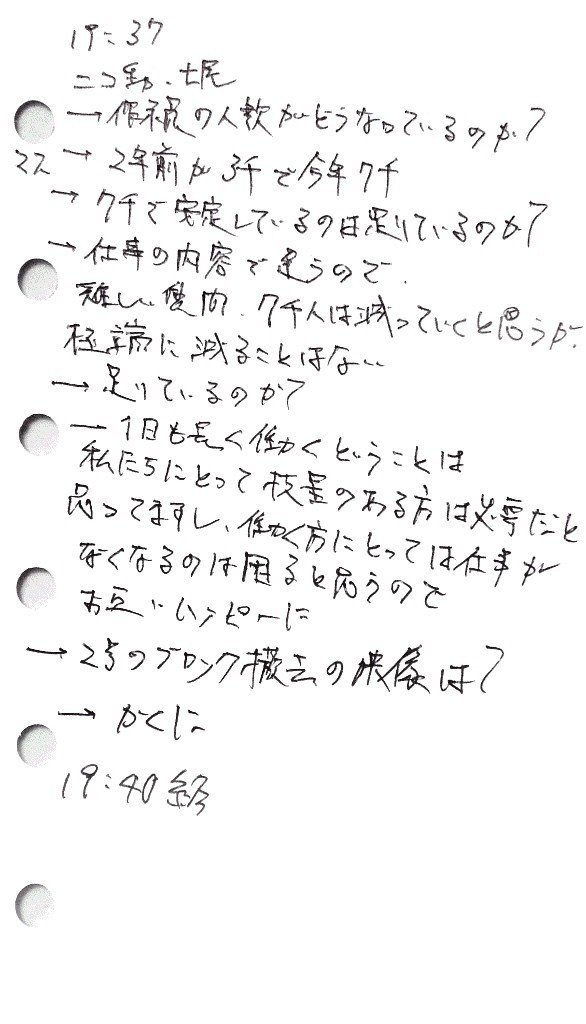 19:37
ニコ動・七尾
→作業員の人数がどうなっているのか?
マス → 2年前が3千で今年7千
→ 7千で安定しているのは足りているのか?
→ 仕事の内容で違うので、
難しい質問、7千人は減っていくと思うが、
極端に減ることはない
→ 足りているのか?
→ 1日も長く働くということは
私たちにとって技量のある方は必要だと
思ってますし、働く方にとっては仕事が
なくなるのは困ると思うので
お互いハッピーに
→ 2号のブロック撤去の映像は?
→ かくに
19:40 終